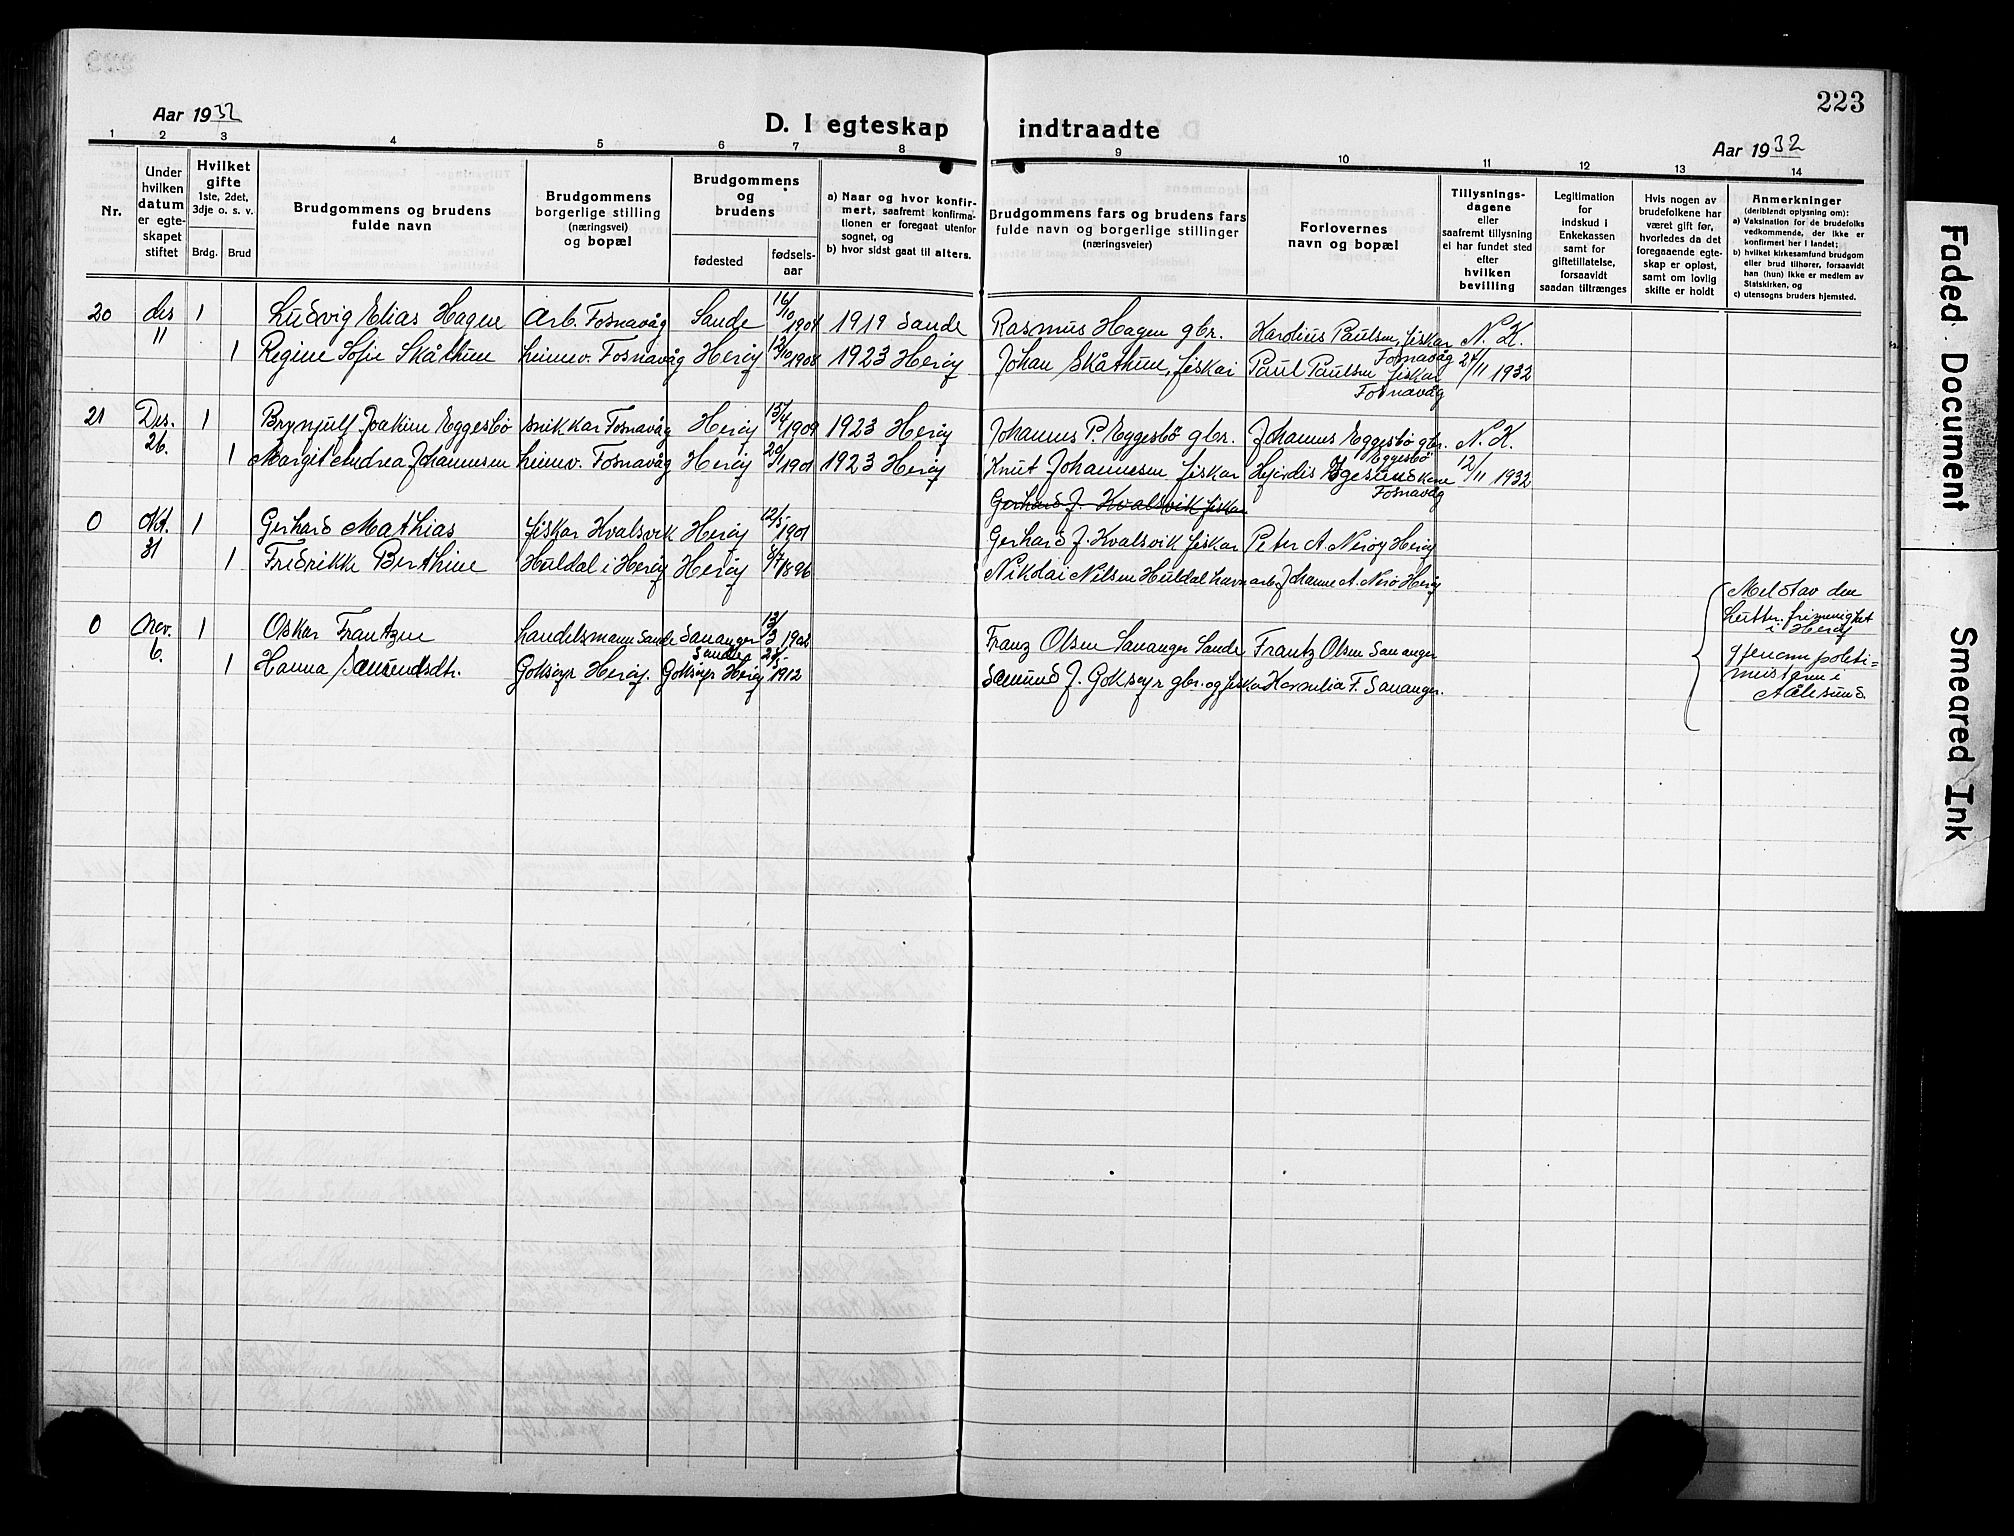 223
Aar 1932
D. I egteskap indtraadte
Aar 1932
1 2 3 4 5 6 7 8 9 10 11 12 13 14
Nr.
Under
hvilken
datum
er egte-
skapet
stiftet
Hvilket
gifte
1ste, 2det,
3dje o. s. v.
Brdg. Brud
Brudgommens og brudens
fulde navn
Brudgommens
borgerlige stilling
(næringsvei)
og bopæl
Brudgommens
og
brudens
fødested
fødsels-
aar
a) Naar og hvor konfir-
mert, saafremt konfirma-
tionen er foregaat utenfor
sognet, og
b) hvor sidst gaat til alters.
Brudgommens fars og brudens fars
fulde navn og borgerlige stillinger
(næringsveier)
Forlovernes
navn og bopæl
Tillysnings-
dagene
eller
saafremt tillysning
ei har fundet sted
efter
hvilken
bevilling
Legitimation
for
indskud i
Enkekassen
samt for
giftetillatelse,
forsaavidt
saadan tiltrænges
Hvis nogen av
brudefolkene har
været gift før,
hvorledes da det
foregaaende egte-
skap er opløst,
samt om lovlig
skifte er holdt
Anmerkninger
(deriblandt oplysning om):
a) Vaksination for de brudefolks
vedkommende, der ikke er
konfirmert her i landet;
b) hvilket kirkesamfund brudgom
eller brud tilhører, forsaavidt
han (hun) ikke er medlem av
Statskirken, og
c) utensogns bruders hjemsted.
20 des 1 Ludvig Elias Hagen Arb. Fosnavåg Sande 16/10 1904 1919 Sande Rasmus Hagen gbr. Karolius Paulsen, fiskar N. K.
Fosnavåg
11 1 Regine Sofie Skåthun heimev. Fosnavåg Herøy 12/10 1908 1923 Herøy Johan Skåthun, fiskar Paul Paulsen fiskar 27/11 1932
Fosnavåg
21 Des. 1 Brynjulf Joakim Eggesbö snikkar Fosnavåg Herøy 15/4 1909 1923 Herøy Johannes P. Eggesbö gbr. Johannes Eggesbö gbr. N. K.
Eggesbö
26. 1 Margit Andrea Johannesen heimev. Fosnavåg Herøy 1923 Herøy Knut Johannesen fiskar 12/11 1932
Fosnavåg
Gerhard J. Kvalsvik fiskar
0 Okt. 1 Gerhard Mathias fiskar Kvalsvik Herøy 12/5 1901 Gerhard J. Kvalsvik fiskar Peter A Nerøy Herøy
31 1 Fredrikke Berthine Huldal i Herøy Herøy 8/7 1896 Nikolai Nilsen Huldal havnarb. Johanne A. Nerø Herøy
0 nov. 1 Oskar Frantzen handelsmann Sande Sananger 1902 Franz Olsen Sananger Sande Frantz Olsen Sananger
Sande
6. 1 Hanna Samundsdtr. Goksøyr Herøy. Goksøyr Herøy 1912 Samund J. Goksøyr gbr. og fiskar Kornelia F. Sananger.
Meld av den
Lutter. frimenighet
i Herøy
gjenom politi=
meisteren i
Aalesund.
Faded Document
Smeared Ink